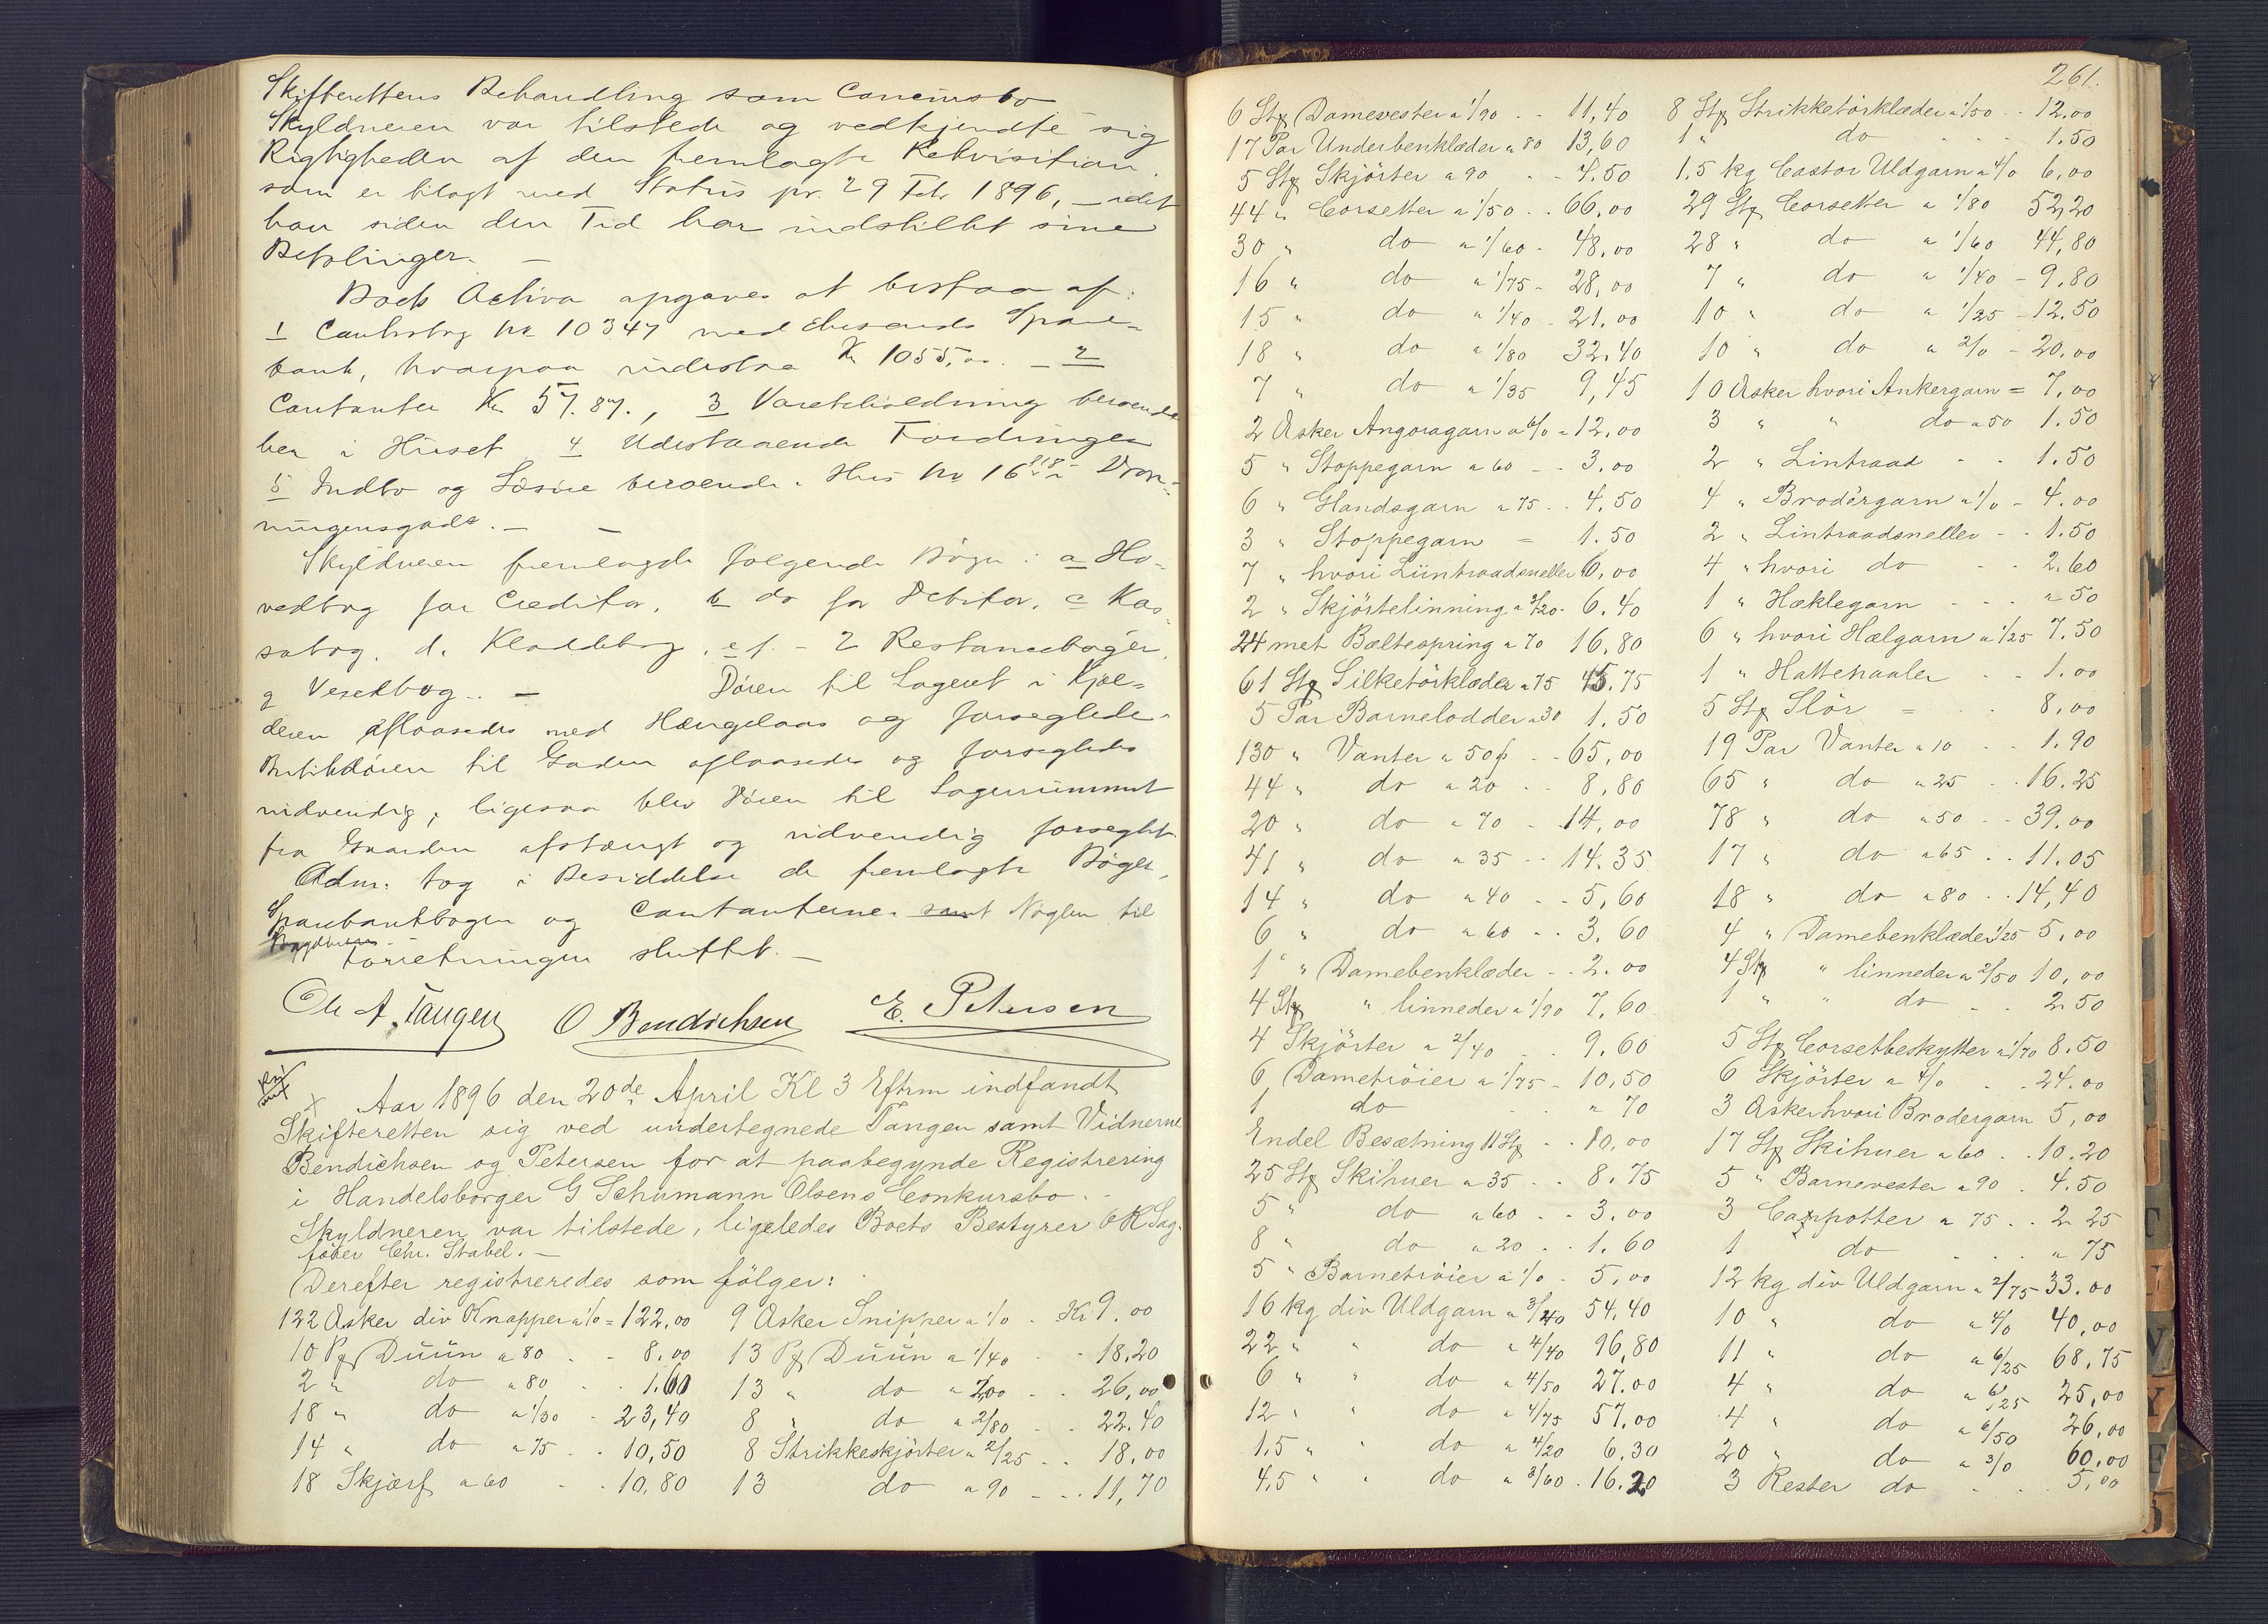 Skifterettens Behandling som Concursbo
Skyldneren var tilstede og vedkjendte sig
Rigtigheden af den fremlagte Rekvisition
som er bilagt med Status pr. 29 Feb 1896, – idet
han siden den Tid har indstillet sine
Betalinger. –
Boets Activa opgaves at bestaa af:
1 Contrabog No 10347 med Spare-
bank, hvorpaa indestaa Kr 1055,00. – 2
Contanter Kr 57.87., 3 Varebeholdning beroende
her i Huset 4 Udestaaende Fordringer
5 Indbo og Løsøre beroende i Hus No 16 Dron-
ningensgade. –
Skyldneren fremlagde følgende Bøger: a Ho-
vedbog for Creditor, b do for Debitor, c Kas-
sabog, d. Kladdebog, e f. – 2 Restancebøger,
g Vexelbog. – Døren til Lageret i Kjæl-
deren aflaasedes med Hængelaas og forseglede.
Butikdøren til Gaden aflaasedes og forsegledes
indvendig, ligesaa blev Døren til Lagerrummet
fra Gaarden afstængt og indvendig forseglet.
Adm. tog i Besiddelse de fremlagte Bøger,
Sparebankbogen og Contanterne. samt Nøglen til
Forretningen sluttet. –
Ole A. Tangen O Bendichsen E. Petersen
x Aar 1896 den 20de April Kl 3 Eftrm indfandt
Skifteretten sig ved undertegnede Tangen samt Vidnerne
Bendichsen og Petersen for at paabegynde Registrering
i Handelsborger G Schumann Olsens Conkursbo. –
Skyldneren var tilstede, ligeledes Boets Bestyrer O R Sag-
fører Chr. Stabel. –
Derefter registreredes som følger:
122 Æsker div Knapper a 1/0 = 122,00 9 Æsker Snipper a 1/0 . Kr 9.00
10 Pf Duun a 80 . - 8.00 13 Pf Duun a 1/40 - 18.20
2 " do a 80 . . 1.60 13 " do a 200 . . 26,00
18 " do a 1/30 - 23,40 8 " do a 2/80 . . 22.40
14 " do a 75 . . 10,50 8 Strikkeskjörter a 2/25 . . 18,00
18 Skjærf a 60 . . 10,80 13 do a 90 - . . 11,70
261.
6 Stk Damevester a 1/90 . . 11,40
17 Par Underbenklæder a 80 13,60
5 Stk Skjörter a 90 . . 4.50
44 " Corsetter a 1/50 . . 66,00
30 " do a 1/60 - 48,00
16 " do a 1/75 - 28,00
15 " do a 1/40 - 21,00
18 " do a 1/80 32.40
7 " do a 1/35 9,45
2 Æsker Angoragarn a 6/0 = 12,00
5 " Stoppegarn a 60 - - 3.00
6 " Glandsgarn a 75 . . 4.50
3 " Stoppegarn = 1.50
7 " hvori Liintraadsneller 6,00
2 " Skjörtelinning a 3/20 - 6.40
24 met Bæltespring a 70 16,80
61 Stk Silketörklæder a 75 45.75
5 Par Barnelodder a 30 1.50
130 " Vanter a 50 - . 65,00
44 " do a 20 . . 8,80
20 " do a 70 - 14,00
41 " do a 35 . . 14.35
14 " do a 40 . . 5,60
6 " do a 60 . . 3,60
1 " Damebenklæder . . 2.00
4 Stk " linneder a 1/90 7,60
4 Skjörter a 2/40 . . 9.60
6 Dametröier a 1/75 - 10,50
1 do . . " 70
Endel Besætning 11 Stk . . 10,00
25 Stk Skihuer a 35 . . 8.75
5 " do a 60 . . 3.00
8 " do a 20 . . 1.60
5 " Barnetröier a 1/0 - 5,00
16 kg div Uldgarn a 3/40 54,40
22 " " do a 4/40 96,80
6 " " do a 4/50 27.00
12 " " do a 4/75 57,00
1,5 " " do a 4/20 6.30
4,5 " " do a 3/60 . 16.20
8 Stk Strikketörklæder a 1/50 . . 12.00
1 " do . . . 1.50
1.5 kg Castor Uldgarn a 4/0 6,00
29 Stk Corsetter a 1/80 52,20
28 " do a 1/60 44,80
7 " do a 1/40 - 9.80
10 " do a 1/25 - 12.50
10 " do a 2/0 - 20,00
10 Æsker hvori Ankergarn = 7,00
3 " " do a 50 1.50
2 " Lintraad - - 1.50
4 " Brodérgarn a 1/0 - 4.00
2 " Lintraadsneller - - 1.50
4 " hvori do . . 2.60
1 " Hæklegarn . . . " 50
6 " hvori Hælgarn a 1/25 7.50
1 " Hattenaaler . . 1.00
5 Stk Slör = . 8,00
19 Par Vanter a 10 . . 1.90
65 " do a 25 . . 16.25
78 " do a 50 . . 39.00
17 " do a 65 . . 11.05
18 " do a 80 . . 14,40
4 " Damebenklæder 1/25 5,00
4 Stk " linneder a 2/50 10,00
1 " " do . . 2.50
5 Stk Corsetbeskytter a 1/70 8.50
6 Skjörter a 4/0 . . 24.00
3 Æsker hvori Brodergarn 5,00
17 Stk Skihuer a 60 . . 10.20
5 " Barnevester a 90 . 4.50
3 Cappotter a 75 . . 2.25
1 do . . . " 75
12 kg div Uldgarn a 2/75 33.00
10 " do a 4/0 40,00
11 " do a 6/25 68,75
4 " do a 6/25 25,00
4 " do a 6/50 26,00
20 " do a 3/0 60,00
3 Rester do . . . 5,00